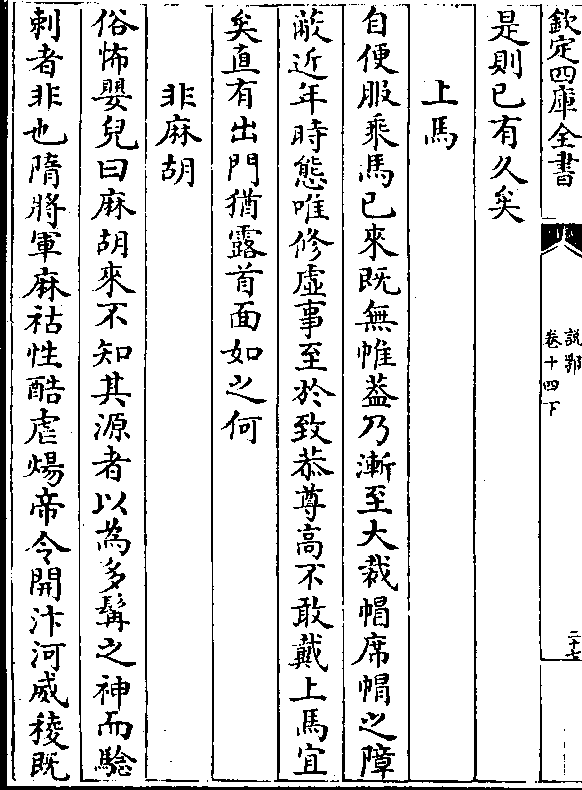 欽定四庫全書
說郛
卷十四下
二十七
是則已有久矣
上馬
自便服乘馬已來既無帷蓋乃漸至大裁帽席帽之障
蔽近年時態唯修虛事至於致恭尊高不敢戴上馬宜
矣直有出門猶露首面如之何
非麻胡
俗怖嬰兒曰麻胡來不知其源者以為多髯之神而驗
刺者非也隋將軍麻祜性酷虐煬帝令開汴河威稜既